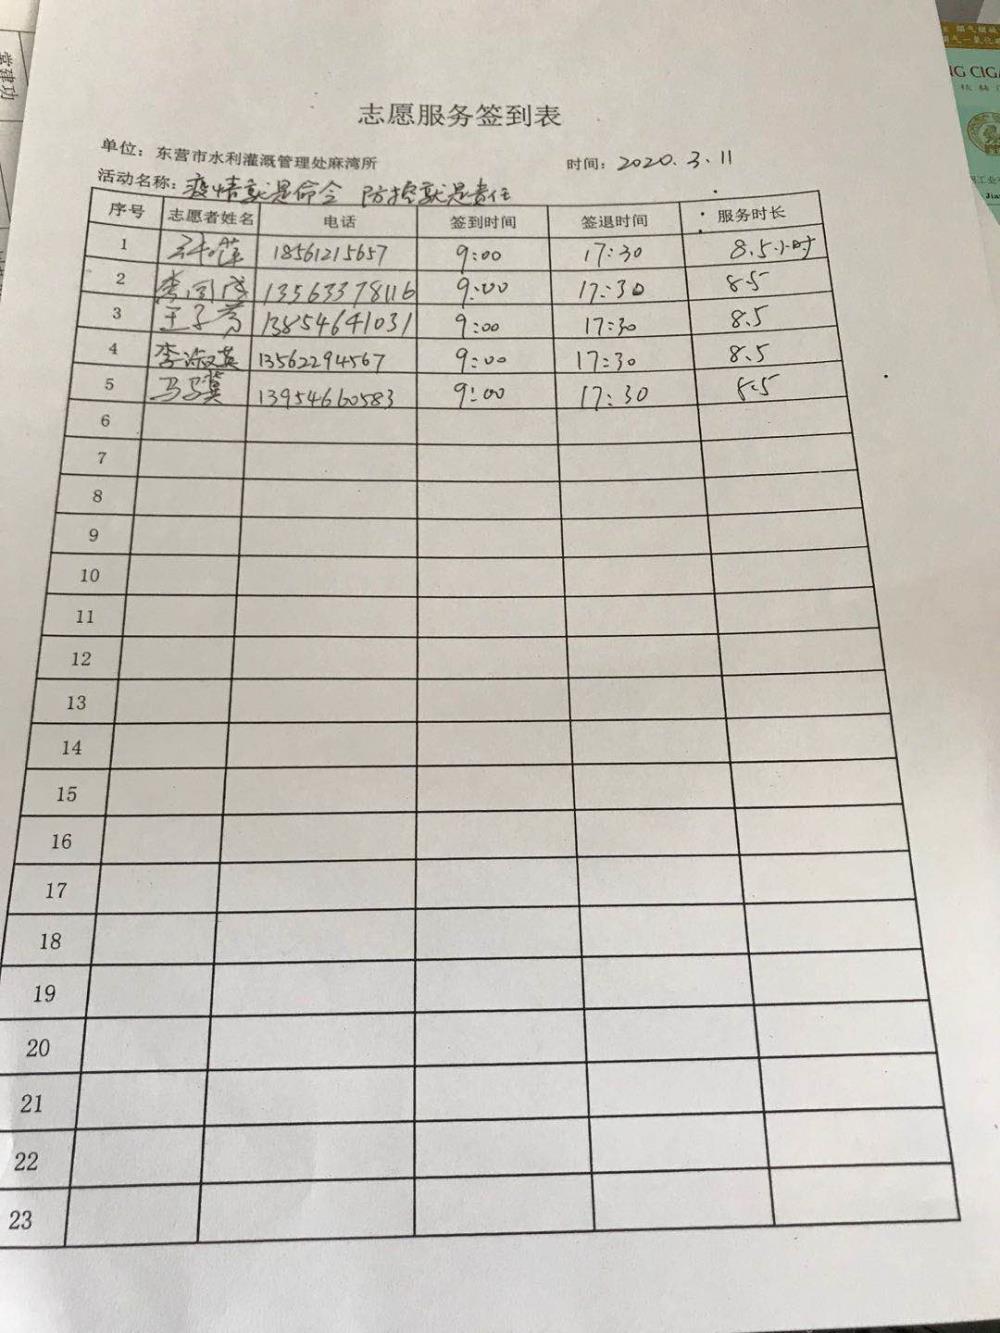 常建功
志愿服务签到表
单位：东营市水利灌溉管理处麻湾所 时间：2020.3.11
活动名称：疫情就是命令 防控就是责任
序号 志愿者姓名 电话 签到时间 签退时间 服务时长
1 萍 18561215657 9:00 17:30 8.5小时
2 李 13563378116 9:00 17:30 8.5
3 王子芳 13854641031 9:00 17:30 8.5
4 李淑英 13562294567 9:00 17:30 8.5
5 马冀 13954660583 9:00 17:30 8.5
6
7
8
9
10
11
12
13
14
15
16
17
18
19
20
21
22
23
NG CIGA
Jia